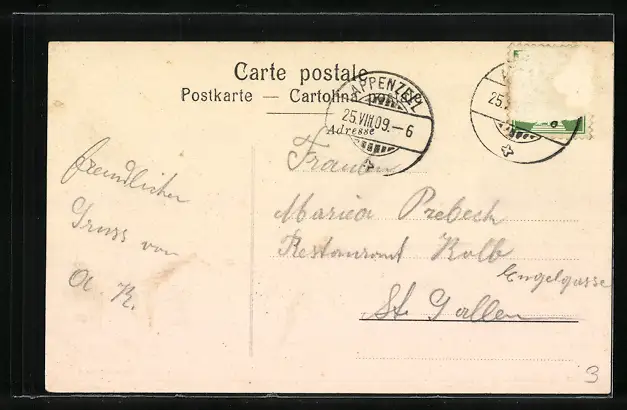 Carte postale
Postkarte — Cartolina postale
APPENZELL
25.VIII.09.–6
Adresse
25.
freundlicher
Gruss von
A. R.
Maria
Restaurant Kolb
Engelgasse
St. Gallen
3